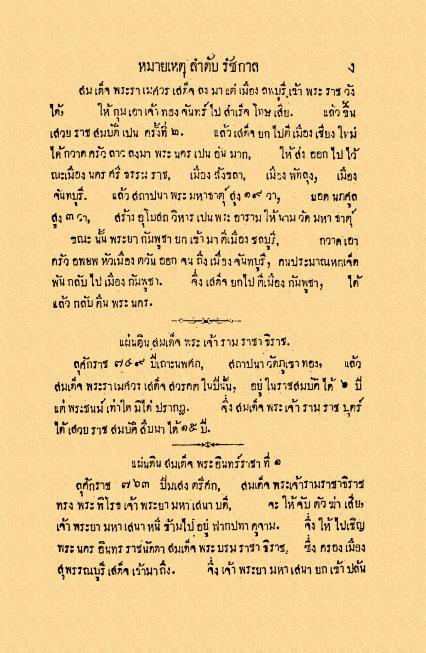 หมายเหตุ ลำดับ รัชกาล ง
สมเด็จ พระราเมศวร เสด็จ ลง มา แต่ เมือง ลพบุรี เข้า พระ ราช วัง
ได้, ให้ กุม เอา เจ้า ทอง จันทร์ ไป สำเร็จ โทษ เสีย. แล้ว ขึ้น
เสวย ราช สมบัติ เปน ครั้งที่ ๒. แล้ว เสด็จ ยก ไป ตี เมือง เชียง ใหม่
ได้ กวาด ครัว ลาว ลงมา พระ นคร เปน อัน มาก, ให้ ส่ง ออก ไป ไว้
ณะเมือง นคร ศรี ธรรม ราช, เมือง สังขลา, เมือง พัทลุง, เมือง
จันทบุรี. แล้ว สถาปนา พระ มหาธาตุ์ สูง ๑๙ วา, ยอด นภศูล
สูง ๓ วา, สร้าง อุโบสถ วิหาร เปน พระ อาราม ให้ นาม วัด มหา ธาตุ์
ขณะ นั้น พระยา กัมพูชา ยก เข้า มา ตี เมือง ชลบุรี, กวาด เอา
ครัว อพยพ หัวเมือง ตวัน ออก จน ถึง เมือง จันทบุรี, คนประมาณหกเจ็ด
พัน กลับ ไป เมือง กัมพูชา. จึ่ง เสด็จ ยกไป ตี เมือง กัมพูชา, ได้
แล้ว กลับ คืน พระ นคร.
แผ่นดิน สมเด็จ พระ เจ้า ราม ราชา ธิราช.
ลุศักราช ๗๔๙ ปีเถาะนพศก, สถาปนา วัดภูเขา ทอง, แล้ว
สมเด็จ พระราเมศวร เสด็จ สวรรคต ในปีนั้น, อยู่ ในราชสมบัติ ได้ ๖ ปี
แต่ พระชนม์ เท่าใด มิได้ ปรากฏ. จึ่ง สมเด็จ พระ เจ้า ราม ราช บุตร์
ได้ เสวย ราช สมบัติ สืบมา ได้ ๑๕ ปี.
แผ่นดิน สมเด็จ พระ อินทร์ราชา ที่ ๑
ลุศักราช ๗๖๓ ปีมเสง ตรีศก, สมเด็จ พระเจ้ารามราชาธิราช
ทรง พระ พิโรธ เจ้า พระยา มหา เสนา บดี, จะ ให้ จับ ตัว ฆ่า เสีย,
เจ้า พระยา มหา เสนา หนี ข้ามไป อยู่ ฟากปทา คูจาม. จึ่ง ให้ ไปเชิญ
พระ นคร อินทร ราชนัดดา สมเด็จ พระ บรม ราชา ธิราช, ซึ่ง ครอง เมือง
สุพรรณบุรี เสด็จ เข้ามาถึง. จึ่ง เจ้า พระยา มหา เสนา ยก เข้า ปล้น